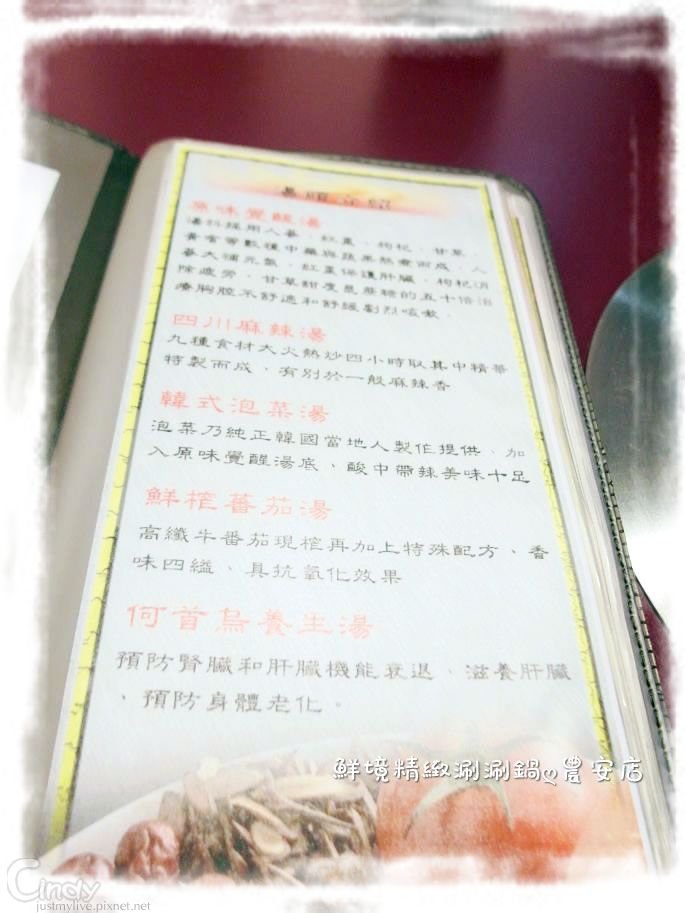 湯頭介紹
原味覺醒湯
湯料採用人蔘、紅棗、枸杞、甘草、
黃耆等數種中藥與蔬果熬煮而成,人
蔘大補元氣,紅棗保護肝臟,枸杞消
除疲勞,甘草甜度是蔗糖的五十倍治
療胸腔不舒適和舒緩劇烈咳嗽.
四川麻辣湯
九種食材大火熱炒四小時取其中精華
特製而成、有別於一般麻辣香
韓式泡菜湯
泡菜乃純正韓國當地人製作提供、加
入原味覺醒湯底、酸中帶辣美味十足
鮮榨蕃茄湯
高纖牛蕃茄現榨再加上特殊配方、香
味四縊、具抗氧化效果
何首烏養生湯
預防腎臟和肝臟機能衰退、滋養肝臟
、預防身體老化。
鮮境精緻涮涮鍋 農安店
Cindy
justmylive.pixnet.net